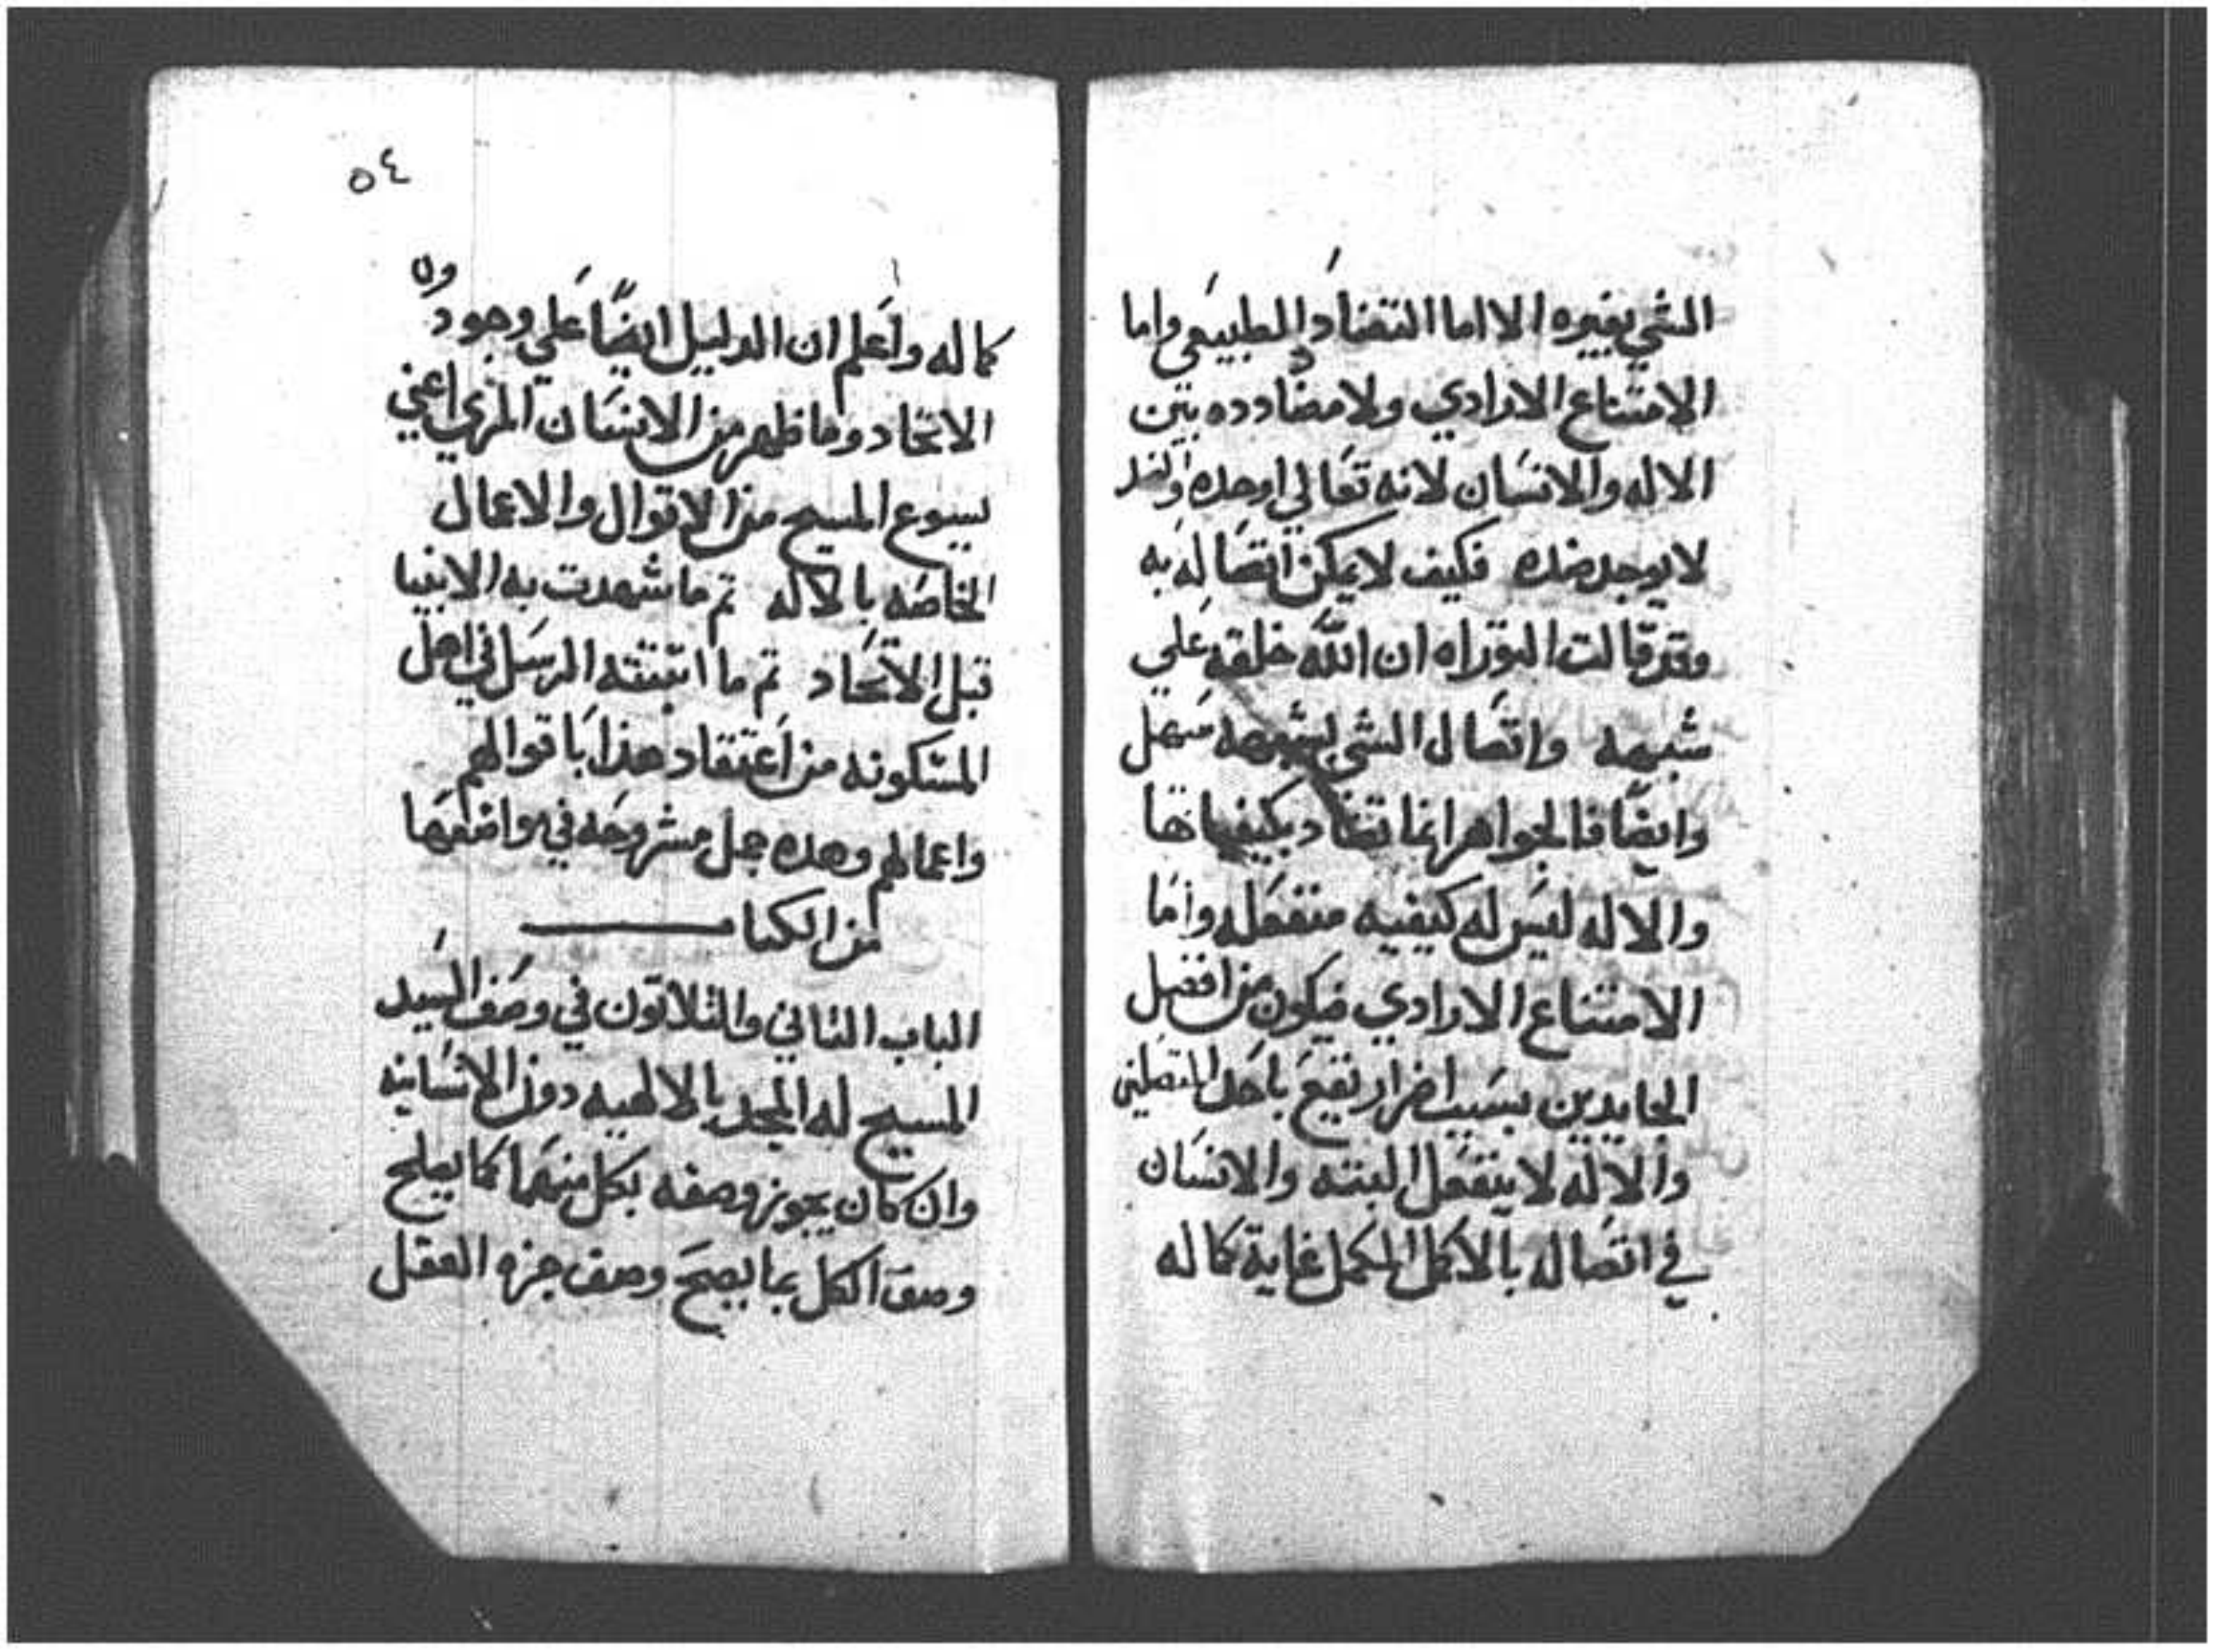 الشي بغيره الا اما التضاد الطبيعي واما
الامتناع الارادي ولا مضادده بين
الاله والانسان لانه تعالي اوحده والضد
لا يوجد ضده فكيف لا يمكن اتصاله به
وقد قالت التوراه ان الله خلقه علي
شبهه واتصال الشي بشبهه سهل
وايضًا فالجواهر انما تتضاد بكيفياتها
والاله ليس له كيفيه منفعله واما
الامتناع الارادي فيكون من افضل
الحايدين بسبب اضرار تقع باحد المتصلين
والاله لا ينفعل البته والانسان
في اتصاله بالاكمل المكمل غاية كماله
٥٤
كماله واعلم ان الدليل ايضًا علي وجود
الاتحاد وما ظهر من الانسان المري اعني
يسوع المسيح من الاقوال والاعمال
الخاصه بالاله تم ما شهدت به الانبيا
قبل الاتحاد تم ما اتبتته الرسل في اهل
المسكونه من اعتقاد هذا باقوالهم
واعمالهم وهده جمل مشروحه في مواضعها
من الكتا
الباب التاني والتلاتون في وصف السيد
المسيح له المجد بالالهيه دون الانسانيه
وان كان يجوز وصفه بكل منهما كما يصلح
وصف الكل بما يصح وصف جزه العقل